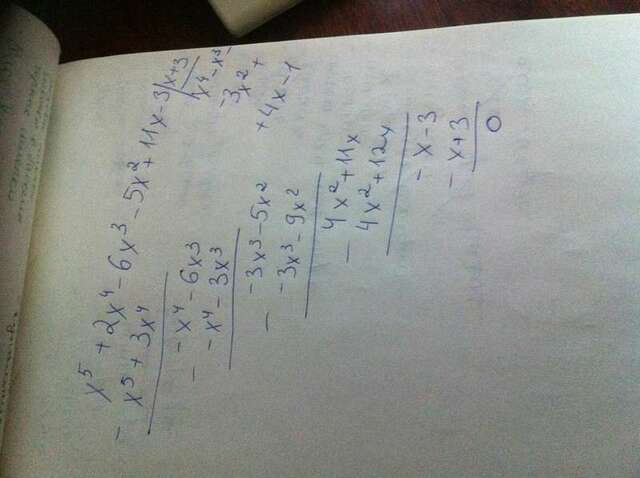 x⁵ + 2x⁴ - 6x³ - 5x² + 11x - 3 | x + 3
- x⁵ + 3x⁴
x⁴ - x³ -
- -x⁴ - 6x³
-3x² +
-x⁴ - 3x³
+ 4x - 1
- -3x³ - 5x²
-3x³ - 9x²
- 4x² + 11x
4x² + 12x
- x - 3
- x + 3
0